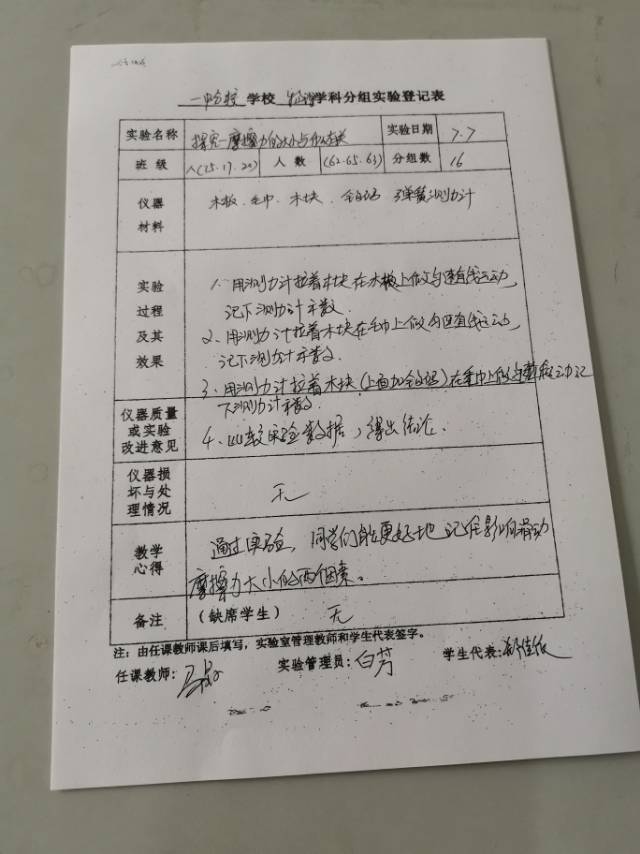 一中分校 学校 物理学科分组实验登记表
实验名称 探究摩擦力的大小与什么有关 实验日期 7.7
班 级 八(15.17.20) 人 数 (62.65.63) 分组数 16
仪器
材料
木板、毛巾、木块、弹簧测力计
实验
过程
及其
效果
1、用测力计拉着木块在木板上做匀速直线运动,
记下测力计示数.
2、用测力计拉着木块在毛巾上做匀速直线运动,
记下测力计示数.
3、用测力计拉着木块(上面加砝码)在毛巾上做匀速运动记
下测力计示数.
仪器质量
或实验
改进意见
4、比较实验数据,得出结论.
仪器损
坏与处
理情况
无
教学
心得
通过实验,同学们能更好地记住影响滑动
摩擦力大小的两个因素。
备注 (缺席学生) 无
注:由任课教师课后填写,实验室管理教师和学生代表签字。
任课教师: 实验管理员:白芳 学生代表: